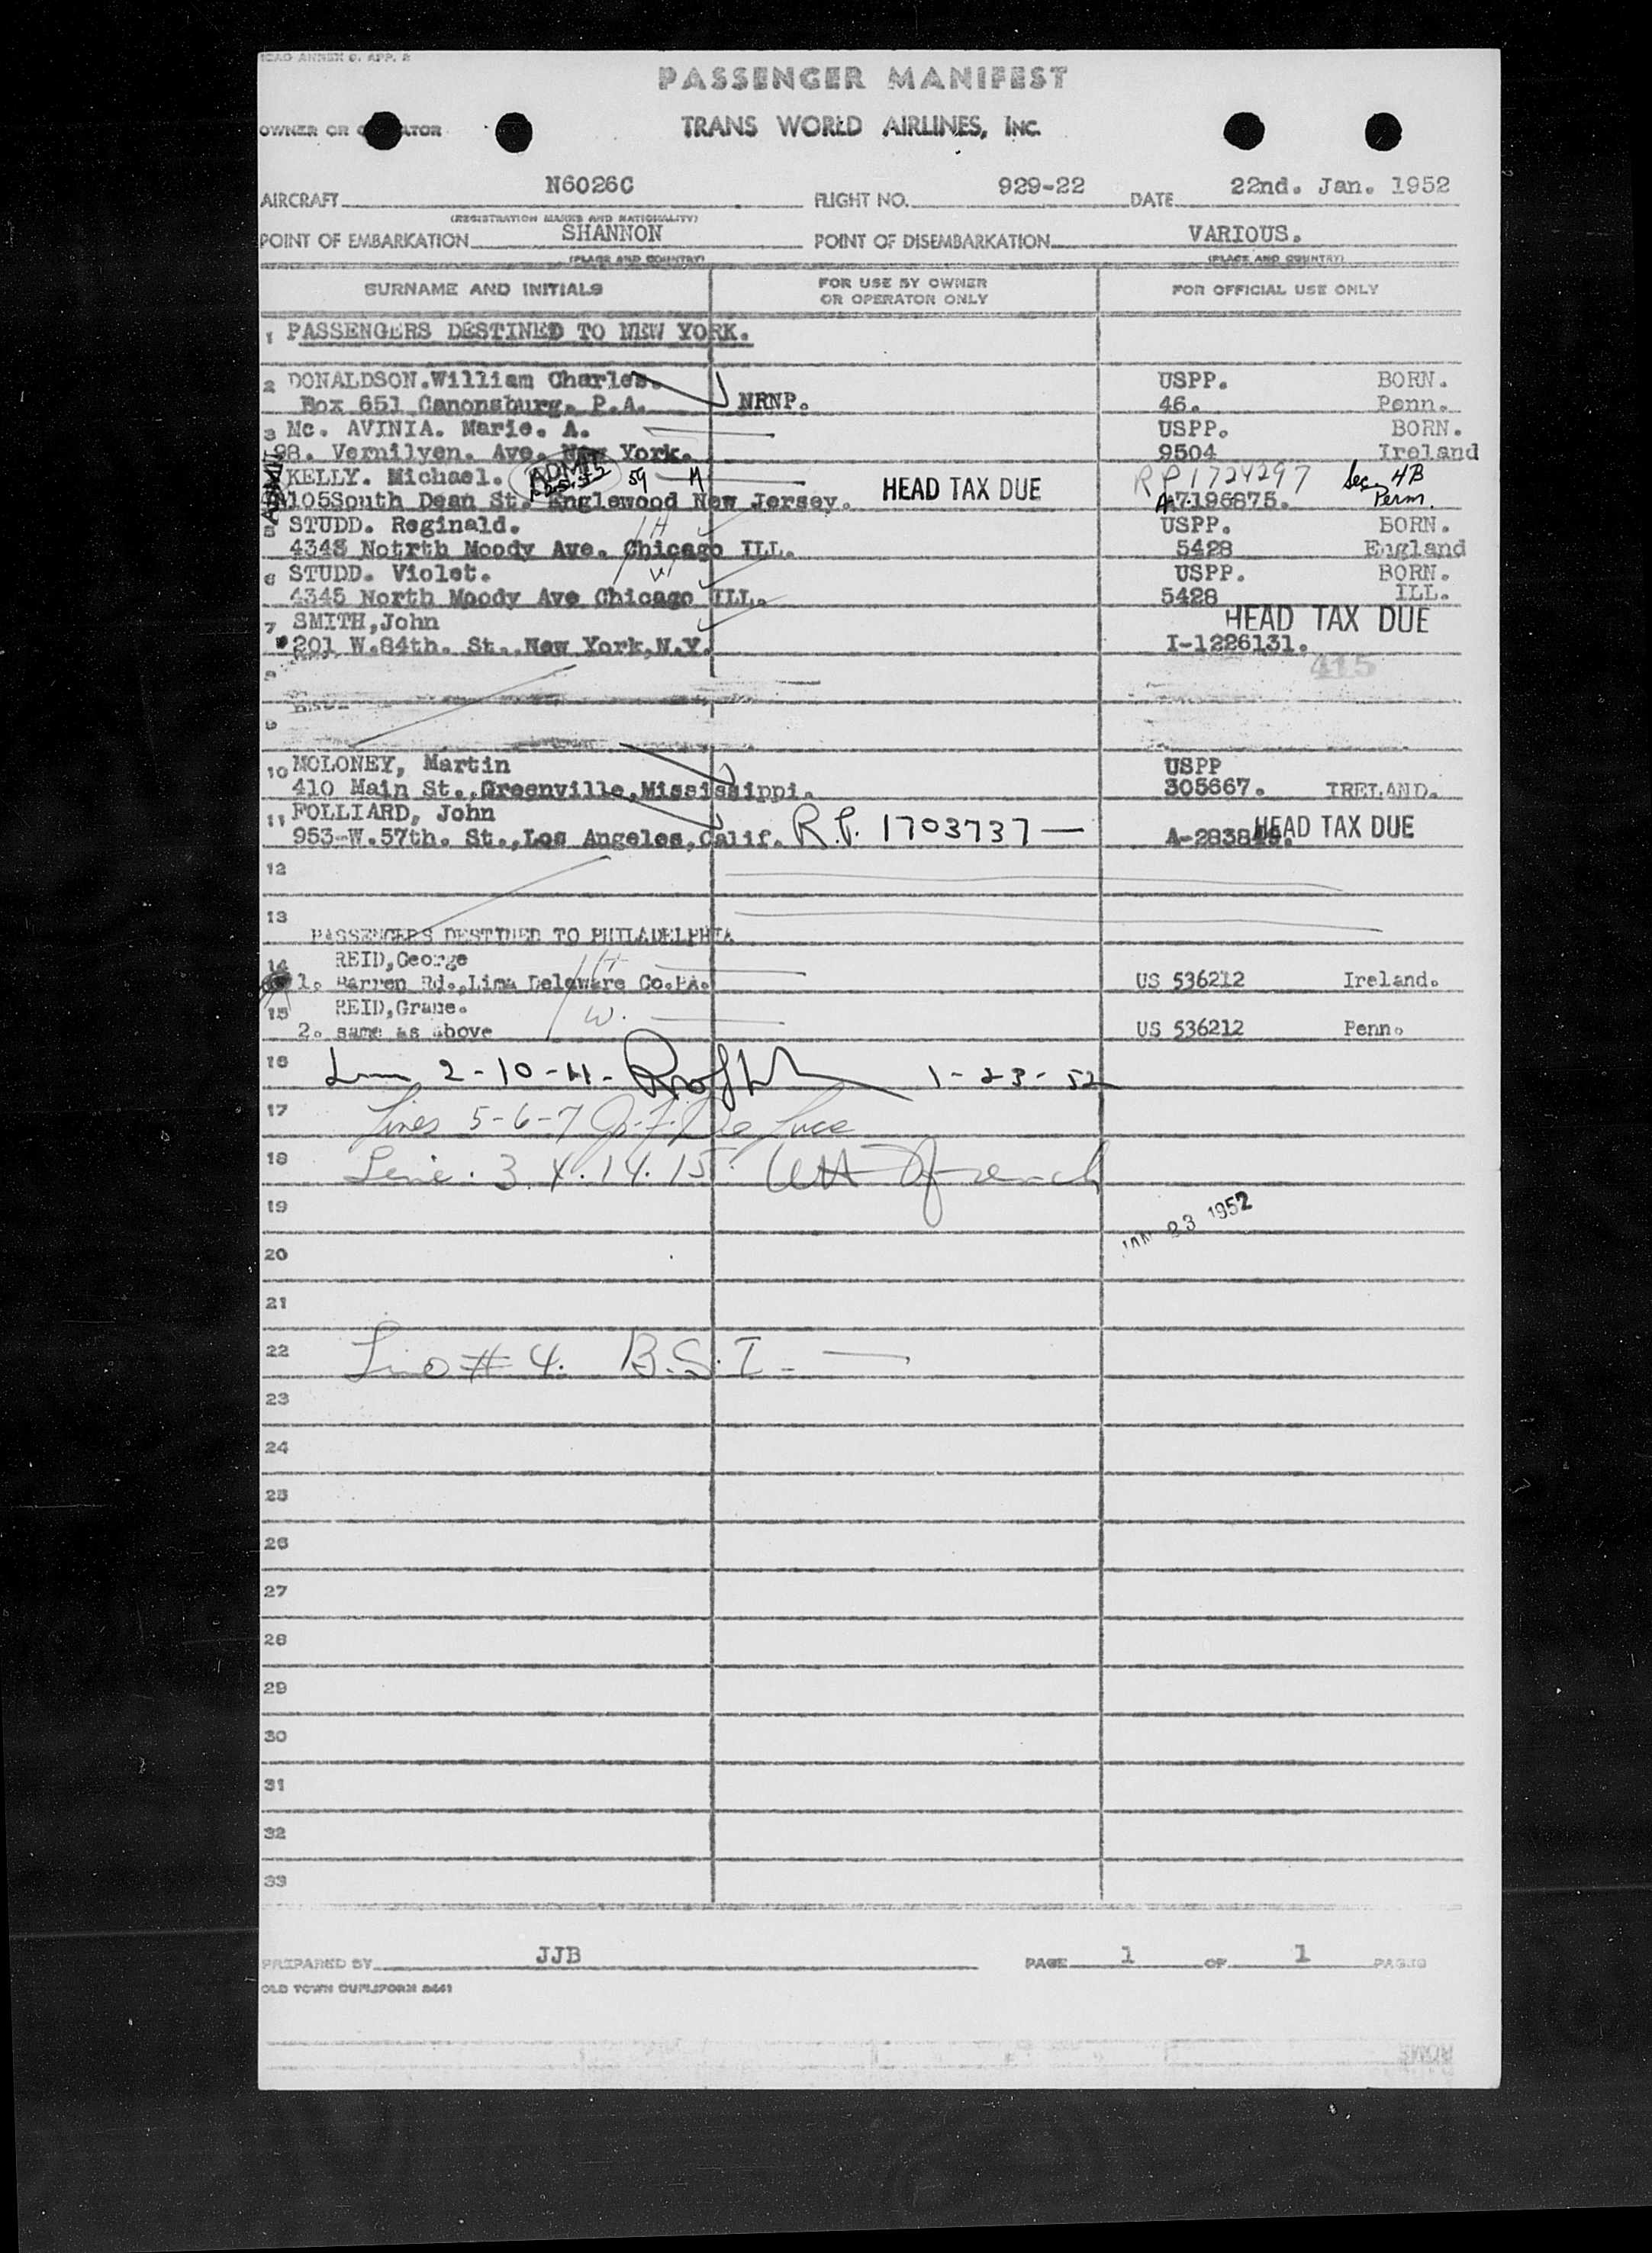 ICAO ANNEX 9, APP. 2
PASSENGER MANIFEST
OWNER OR TOR TRANS WORLD AIRLINES, INC.
AIRCRAFT N6026C FLIGHT NO. 929-22 DATE 22nd. Jan. 1952
(REGISTRATION MARKS AND NATIONALITY)
POINT OF EMBARKATION SHANNON POINT OF DISEMBARKATION VARIOUS.
(PLACE AND COUNTRY) (PLACE AND COUNTRY)
SURNAME AND INITIALS FOR USE BY OWNER OR OPERATOR ONLY FOR OFFICIAL USE ONLY
1 PASSENGERS DESTINED TO NEW YORK.
2 DONALDSON.William Charles. USPP. BORN.
Box 651 Canonsburg. P.A. NRNP. 46. Penn.
3 Mc. AVINIA. Marie. A. USPP. BORN.
98. Vernilyen. Ave. New York. 9504 Ireland
ADMIT KELLY. Michael. ADMIT 59 M RP1724297 Sec 4B
105South Dean St. Englewood New Jersey. HEAD TAX DUE A7196875. Perm.
5 STUDD. Reginald. H USPP. BORN.
4345 Notrth Moody Ave. Chicago ILL. 5428 England
6 STUDD. Violet. W USPP. BORN.
4345 North Moody Ave Chicago ILL. 5428 ILL.
7 SMITH,John HEAD TAX DUE
201 W.84th. St.,New York,N.Y. I-1226131.
415
10 MOLONEY, Martin USPP
410 Main St.,Greenville,Mississippi. 305667. IRELAND.
11 FOLLIARD, John
953-W.57th. St.,Los Angeles,Calif. R.P. 1703737 — HEAD TAX DUE
12
13
PASSENGERS DESTINED TO PHILADELPHIA
14 REID,George H
1. Barren Rd.,Lima Delaware Co.PA. US 536212 Ireland.
15 REID,Grane. W.
2. same as above US 536212 Penn.
16 2-10-11- 1-23-52
17 Lines 5-6-7 J.F. De Luce
18 Line. 3. 4. 14. 15.
19 JAN 23 1952
20
21
22 Line # 4. B.S.I. —
23
24
25
26
27
28
29
30
31
32
33
PREPARED BY JJB PAGE 1 OF 1 PAGES
OLD TOWN DUPLIFORM